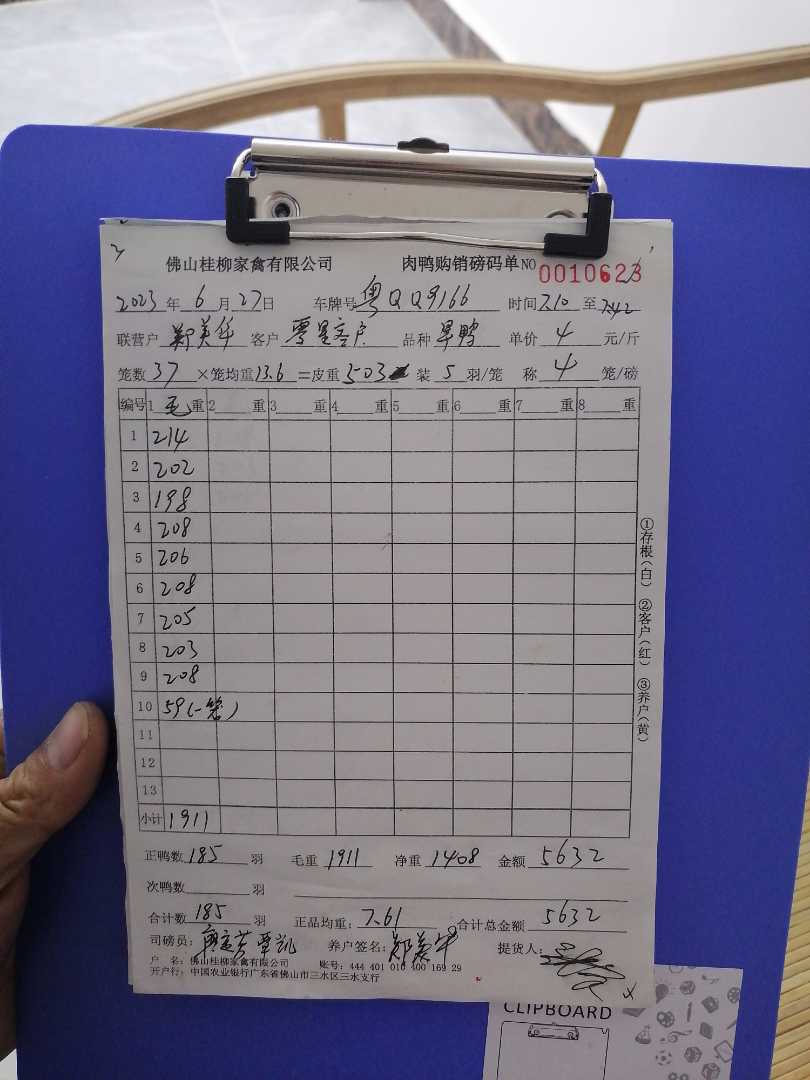 佛山桂柳家禽有限公司 肉鸭购销磅码单NO 0010623
2023年6月27日 车牌号 粤QQ9166 时间 7.10 至 7.42
联营户 郑美华 客户 零星客户 品种 旱鸭 单价 4 元/斤
笼数 37 ×笼均重 13.6 =皮重 503 装 5 羽/笼 称 4 笼/磅
编号 1 毛 重 2 重 3 重 4 重 5 重 6 重 7 重 8 重
1 214
2 202
3 198
4 208
5 206
6 208
7 205
8 203
9 208
10 59(一笼)
11
12
13
小计 1911
①存根(白) ②客户(红) ③养户(黄)
正鸭数 185 羽 毛重 1911 净重 1408 金额 5632
次鸭数 羽
合计数 185 羽 正品均重: 7.61 合计总金额 5632
司磅员: 养户签名: 郑美华 提货人:
户 名: 佛山桂柳家禽有限公司 账号: 444 401 010 400 169 29
开户行: 中国农业银行广东省佛山市三水区三水支行
CLIPBOARD